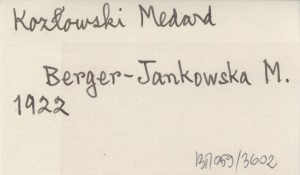 Kozłowski Medard
Berger-Jankowska M.
1922
/3602